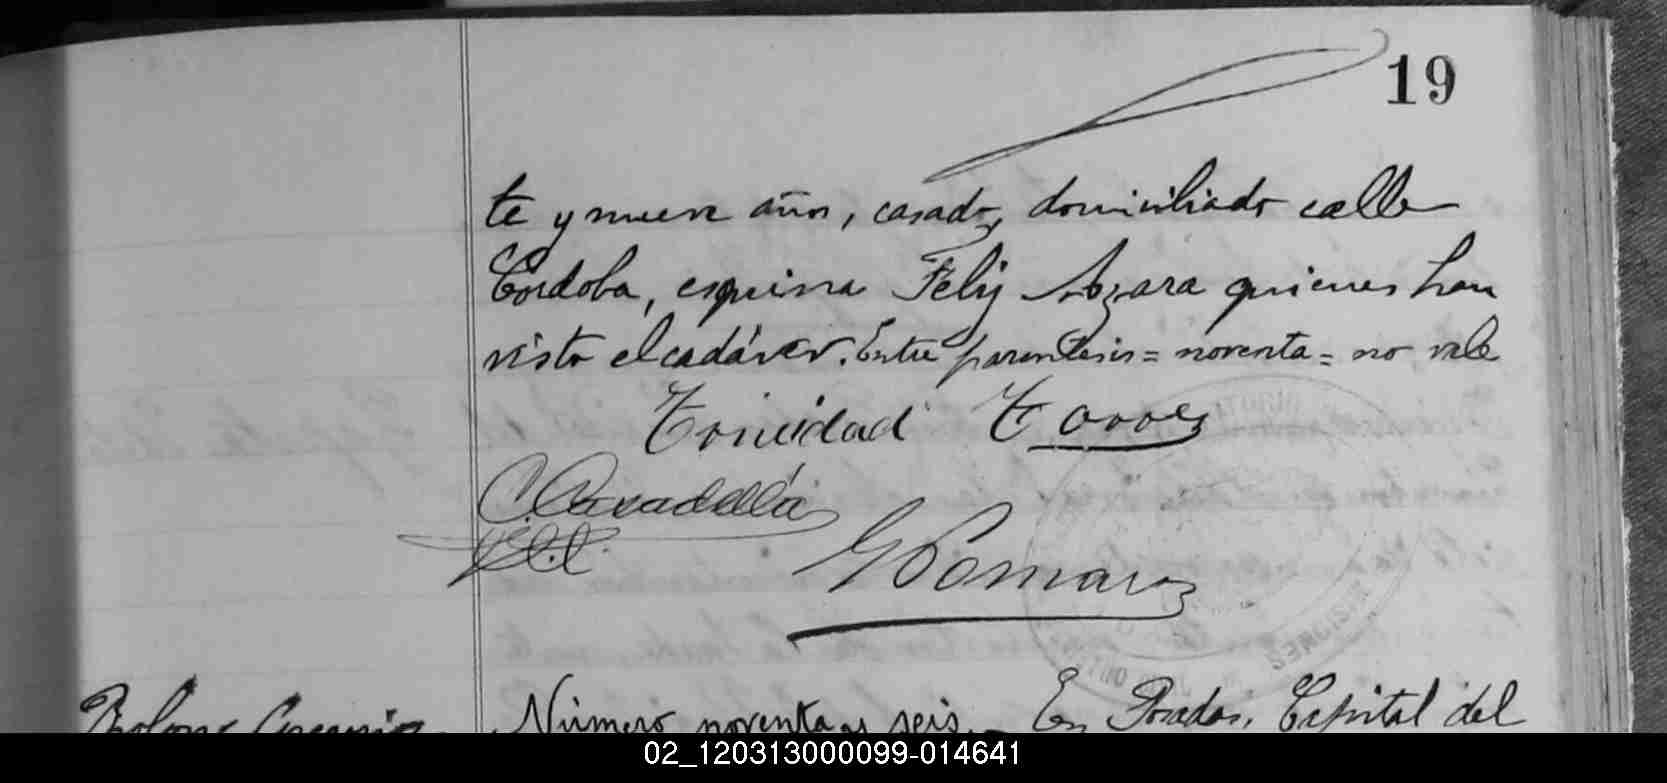 19
te y nueve años, casado, domiciliado calle
Córdoba, esquina Feliz Azara quienes han
visto el cadáver. Entre parentesis = noventa = no vale
Trinidad Torres
Número noventa y seis. En Posadas, Capital del
02_120313000099-014641